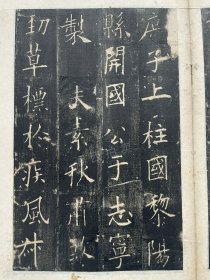 庶子上柱國黎陽
縣開國公于志寧
製 夫素秋肅
勁草標於疾風